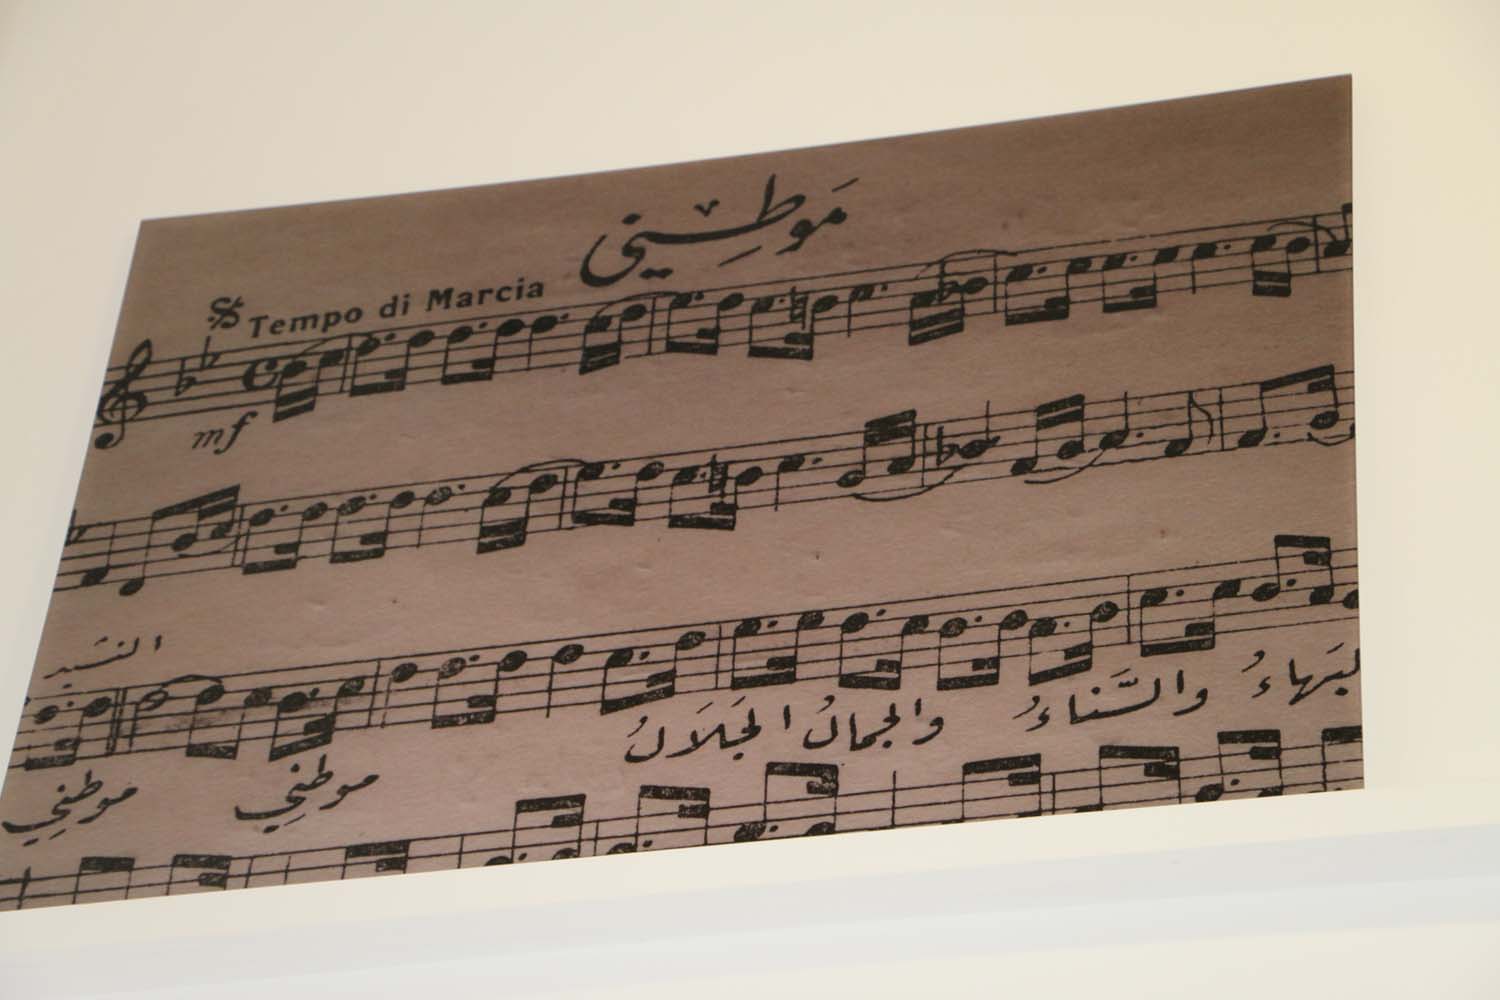 مَوطِنِي
Tempo di Marcia
mf
النشيد
موطني موطنِي
الجَلَالُ والجمالُ والسَّناءُ والبَهاءُ